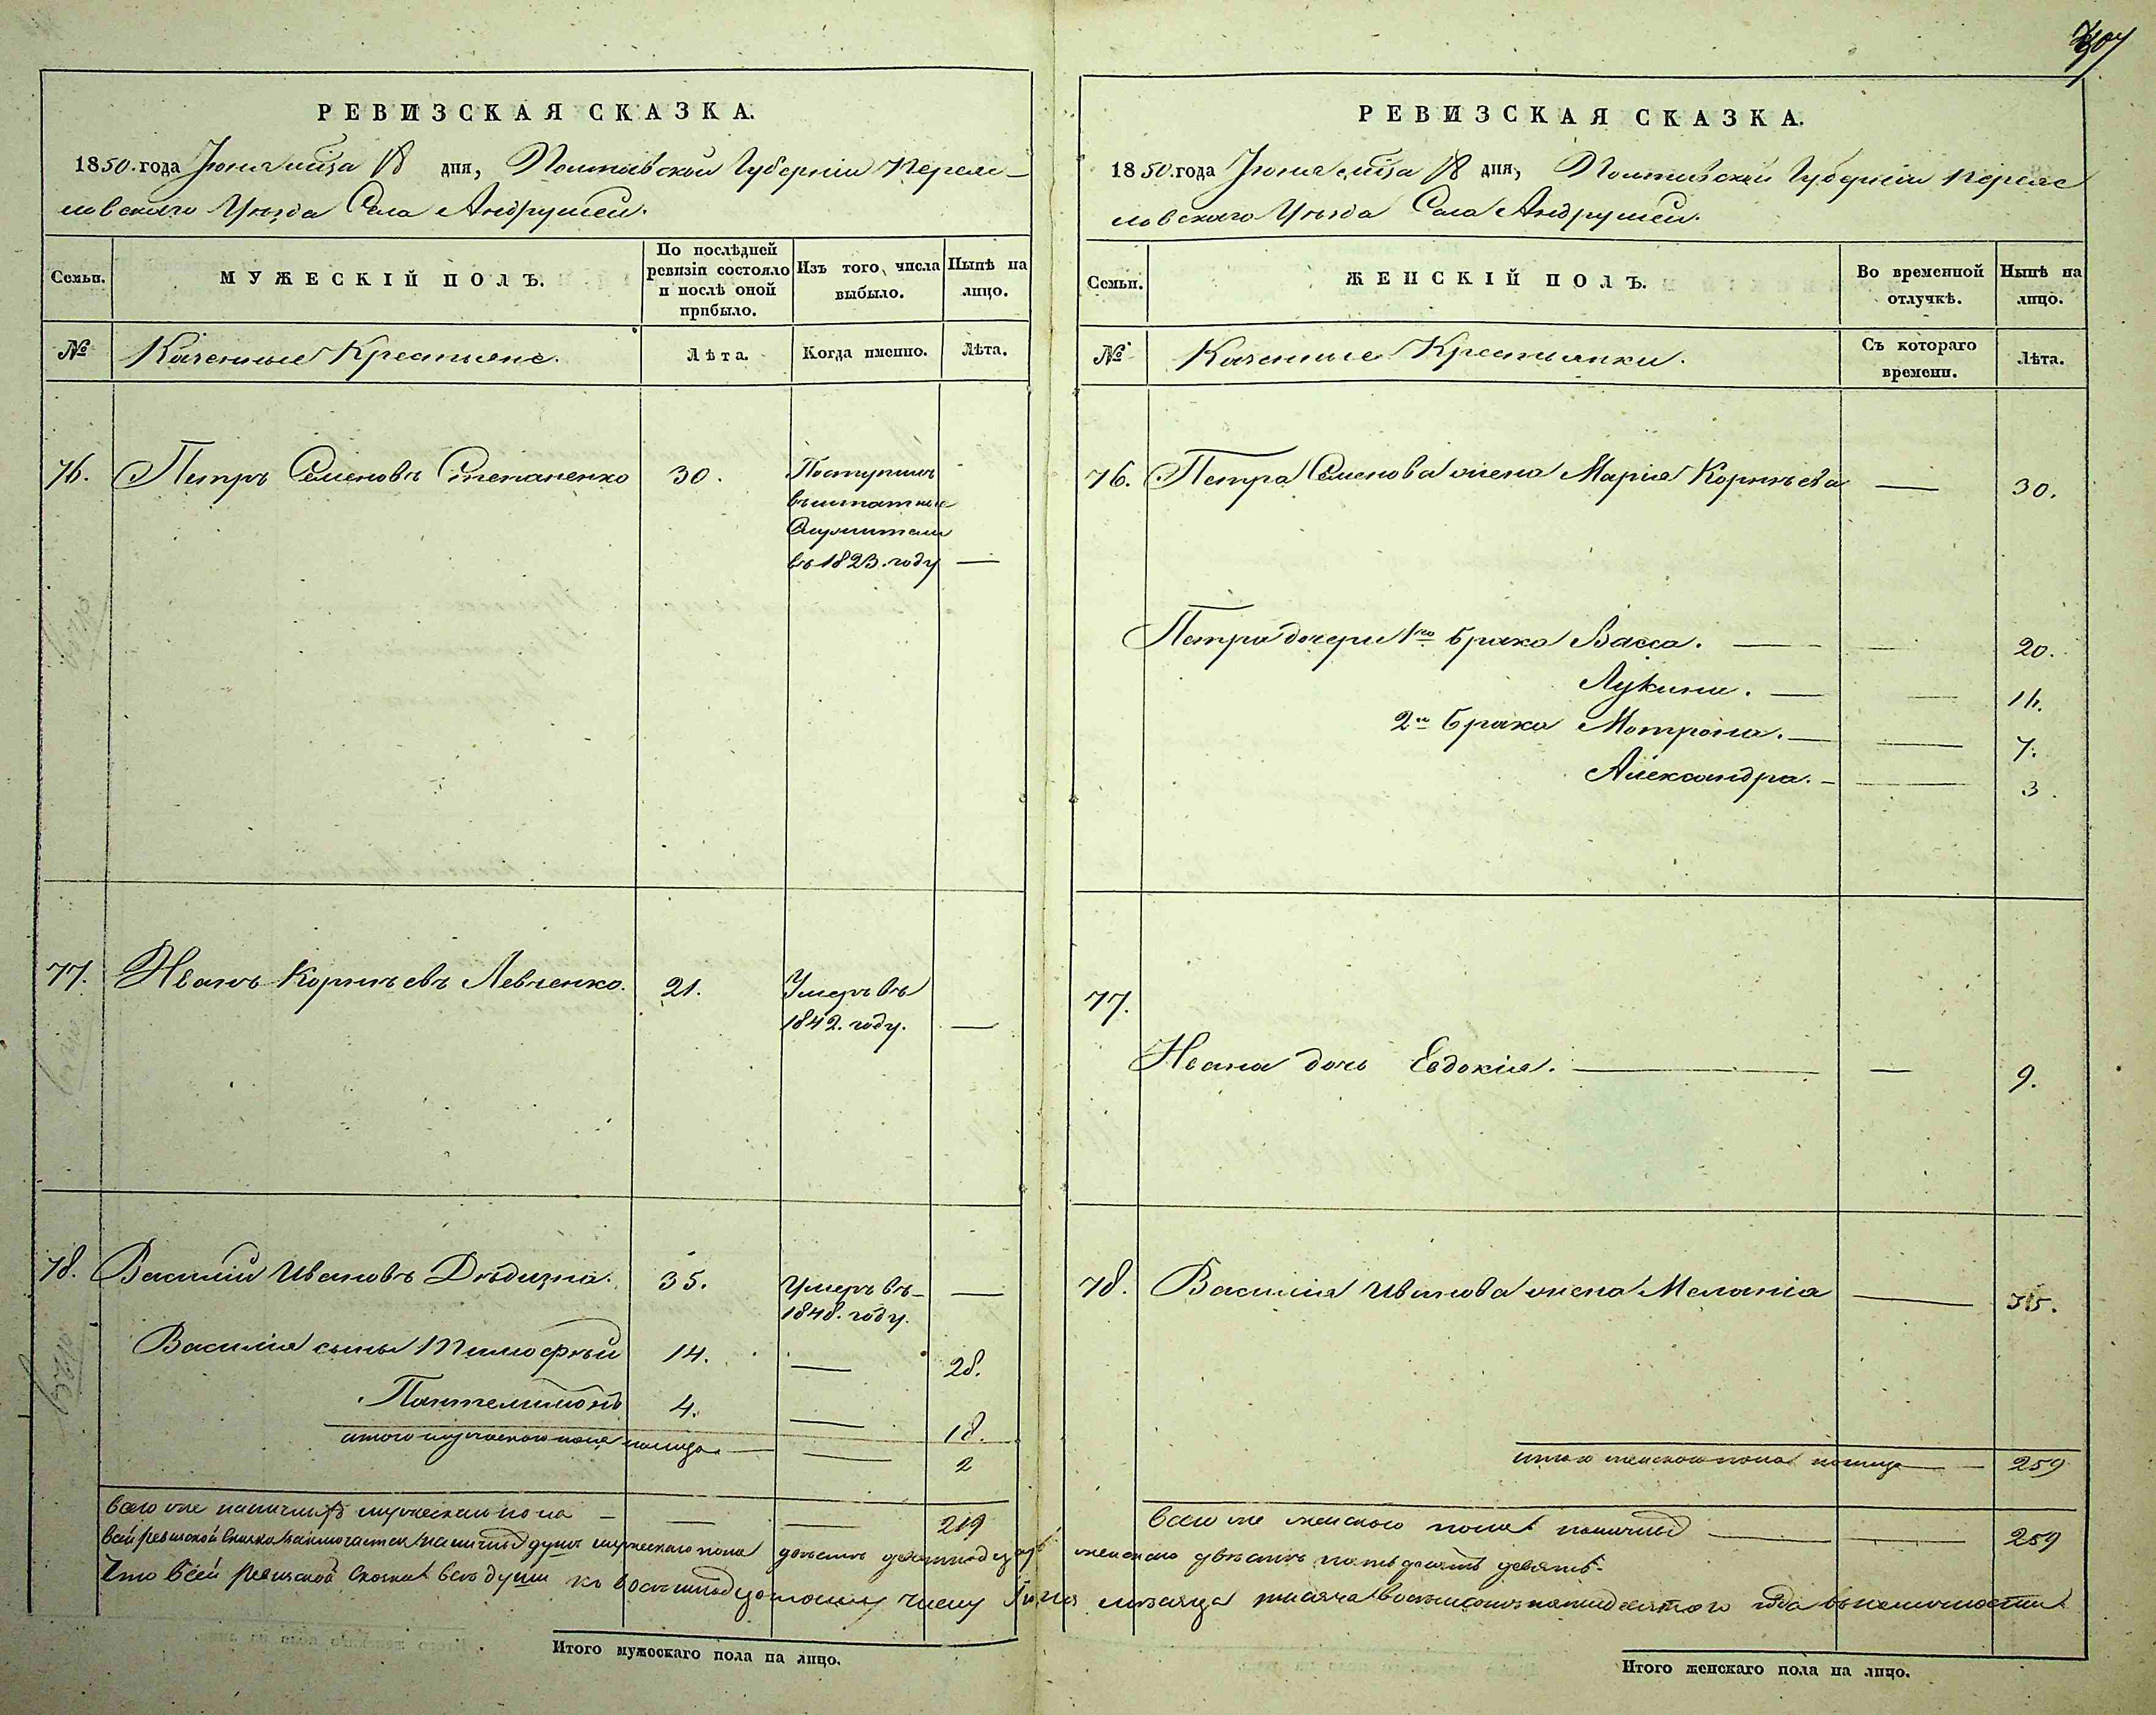 РЕВИЗСКАЯ СКАЗКА.
1850. года Іюня мца 18 дня, Полтавской Губерніи Переяс-
лавскаго Уѣзда Села Андрушей.
Семьи.
МУЖЕСКІЙ ПОЛЪ.
По послѣдней
ревизіи состояло
и послѣ оной
прибыло.
Изъ того числа
выбыло.
Нынѣ на
лицо.
№
Казенные Крестьяне.
Лѣта.
Когда именно.
Лѣта.
76. Петръ Семеновъ Степаненко 30. Поступилъ
въ штатные
Служители
въ 1823. году —
77. Иванъ Корнѣевъ Левченко. 21. Умеръ въ
1842. году. —
78. Василій Ивановъ Дѣдизна. 35. Умеръ въ —
1848. году.
Василія сыны Тимофѣй 14. — 28.
Пантелимонъ 4. — 18.
итого мужескаго пола налицо — — 2
Всего же наличныхъ мужескаго пола — — — 219
Итого мужескаго пола на лицо.
РЕВИЗСКАЯ СКАЗКА.
1850. года Іюня мца 18 дня, Полтавской Губерніи Переяс
лавскаго Уѣзда Села Андрушей.
Семьи.
ЖЕНСКІЙ ПОЛЪ.
Во временной
отлучкѣ.
Нынѣ на
лицо.
№
Казенные Крестьянки.
Съ котораго
времени.
Лѣта.
76. Петра Семенова жена Марія Корнѣева — 30.
Петра дочери 1го брака Васса. — — 20.
Лукини. — — 16.
2го брака Мотрона. — — 7.
Александра. — — 3.
77.
Ивана дочь Евдокія. — — 9.
78. Василія Иванова жена Меланія — 55.
итого женскаго пола налицо — 259
Всего же женскаго пола наличныхъ — — 259
женскаго двѣсти пятьдесятъ девять.
Что въ сей ревизской сказкѣ всѣ души къ восемнадцатому числу Іюня мѣсяца тысяча восемьсотъ пятидесятого года въ наличности
Итого женскаго пола на лицо.